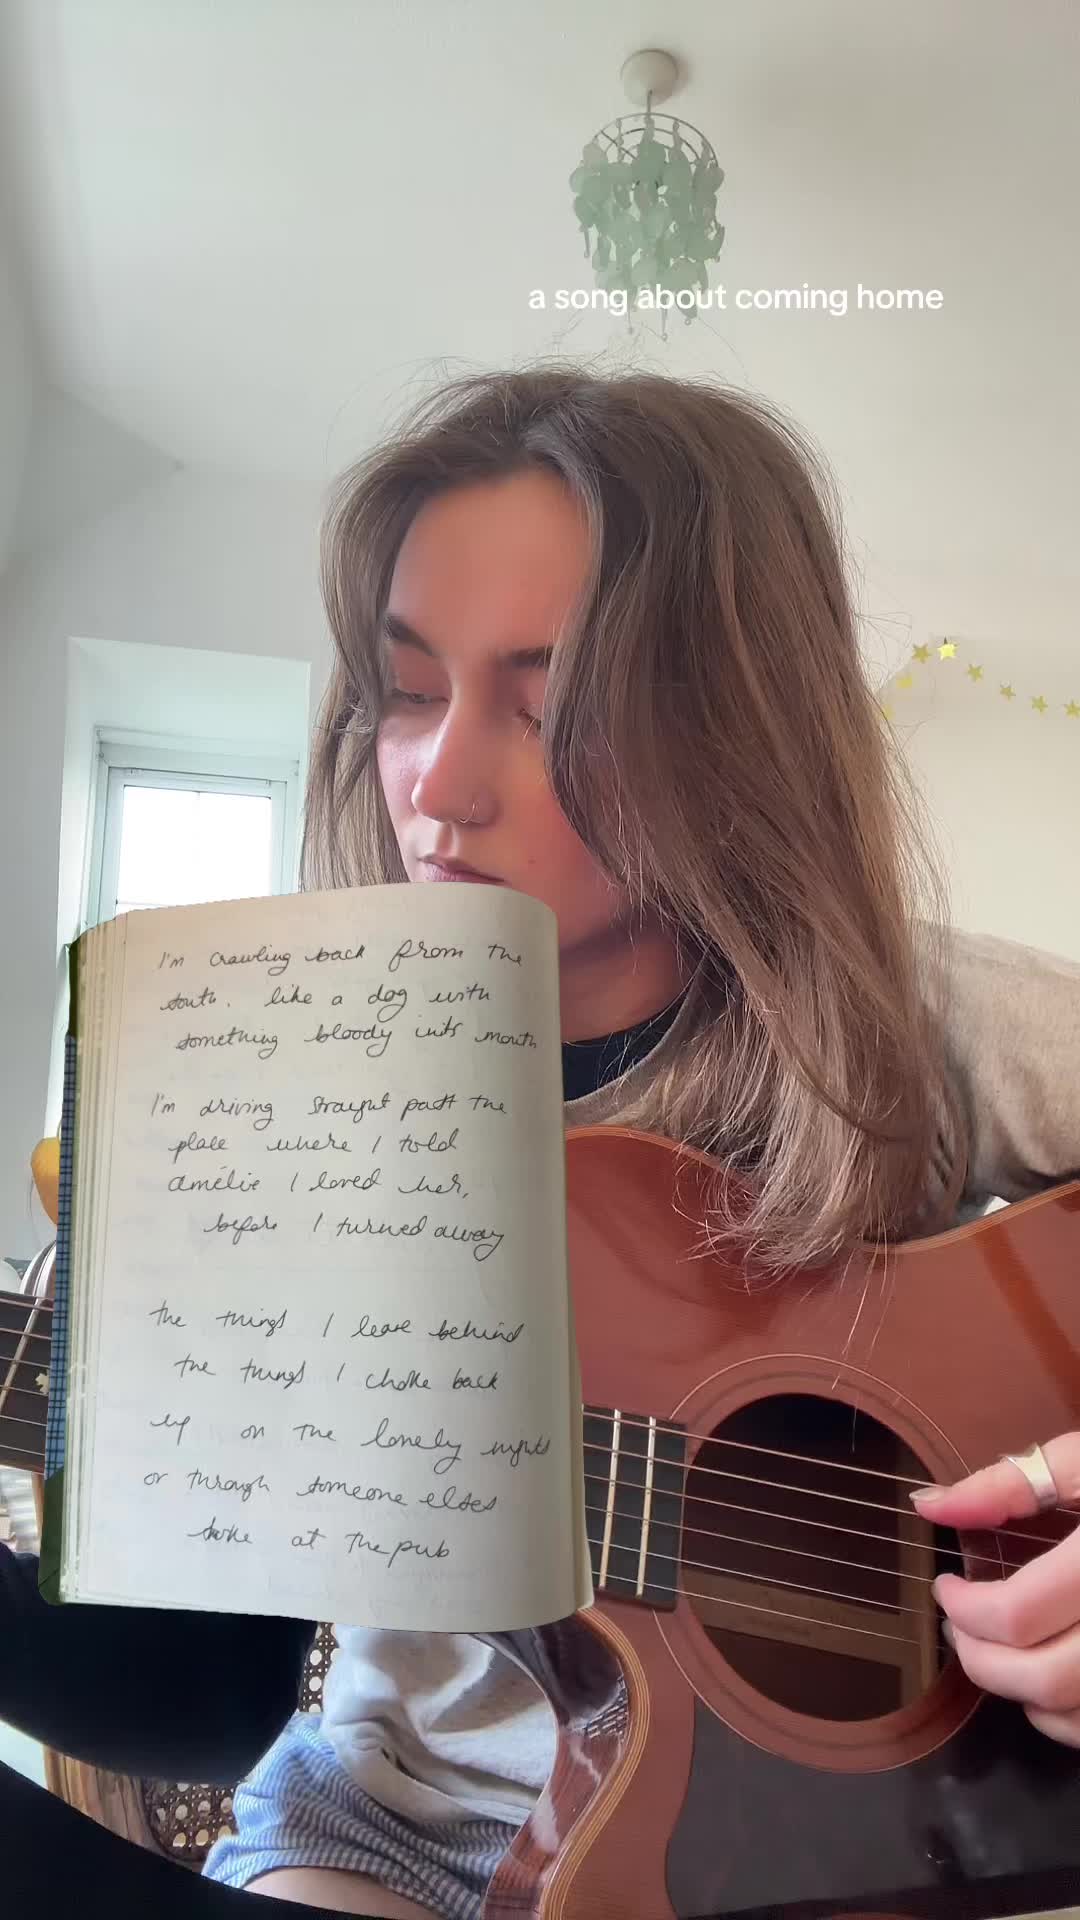 a song about coming home
I'm crawling back from the
south. like a dog with
something bloody in its mouth
I'm driving straight past the
place where I told
amélie I loved her,
before I turned away
the things I leave behind
the things I choke back
up on the lonely nights
or through someone elses
smoke at the pub